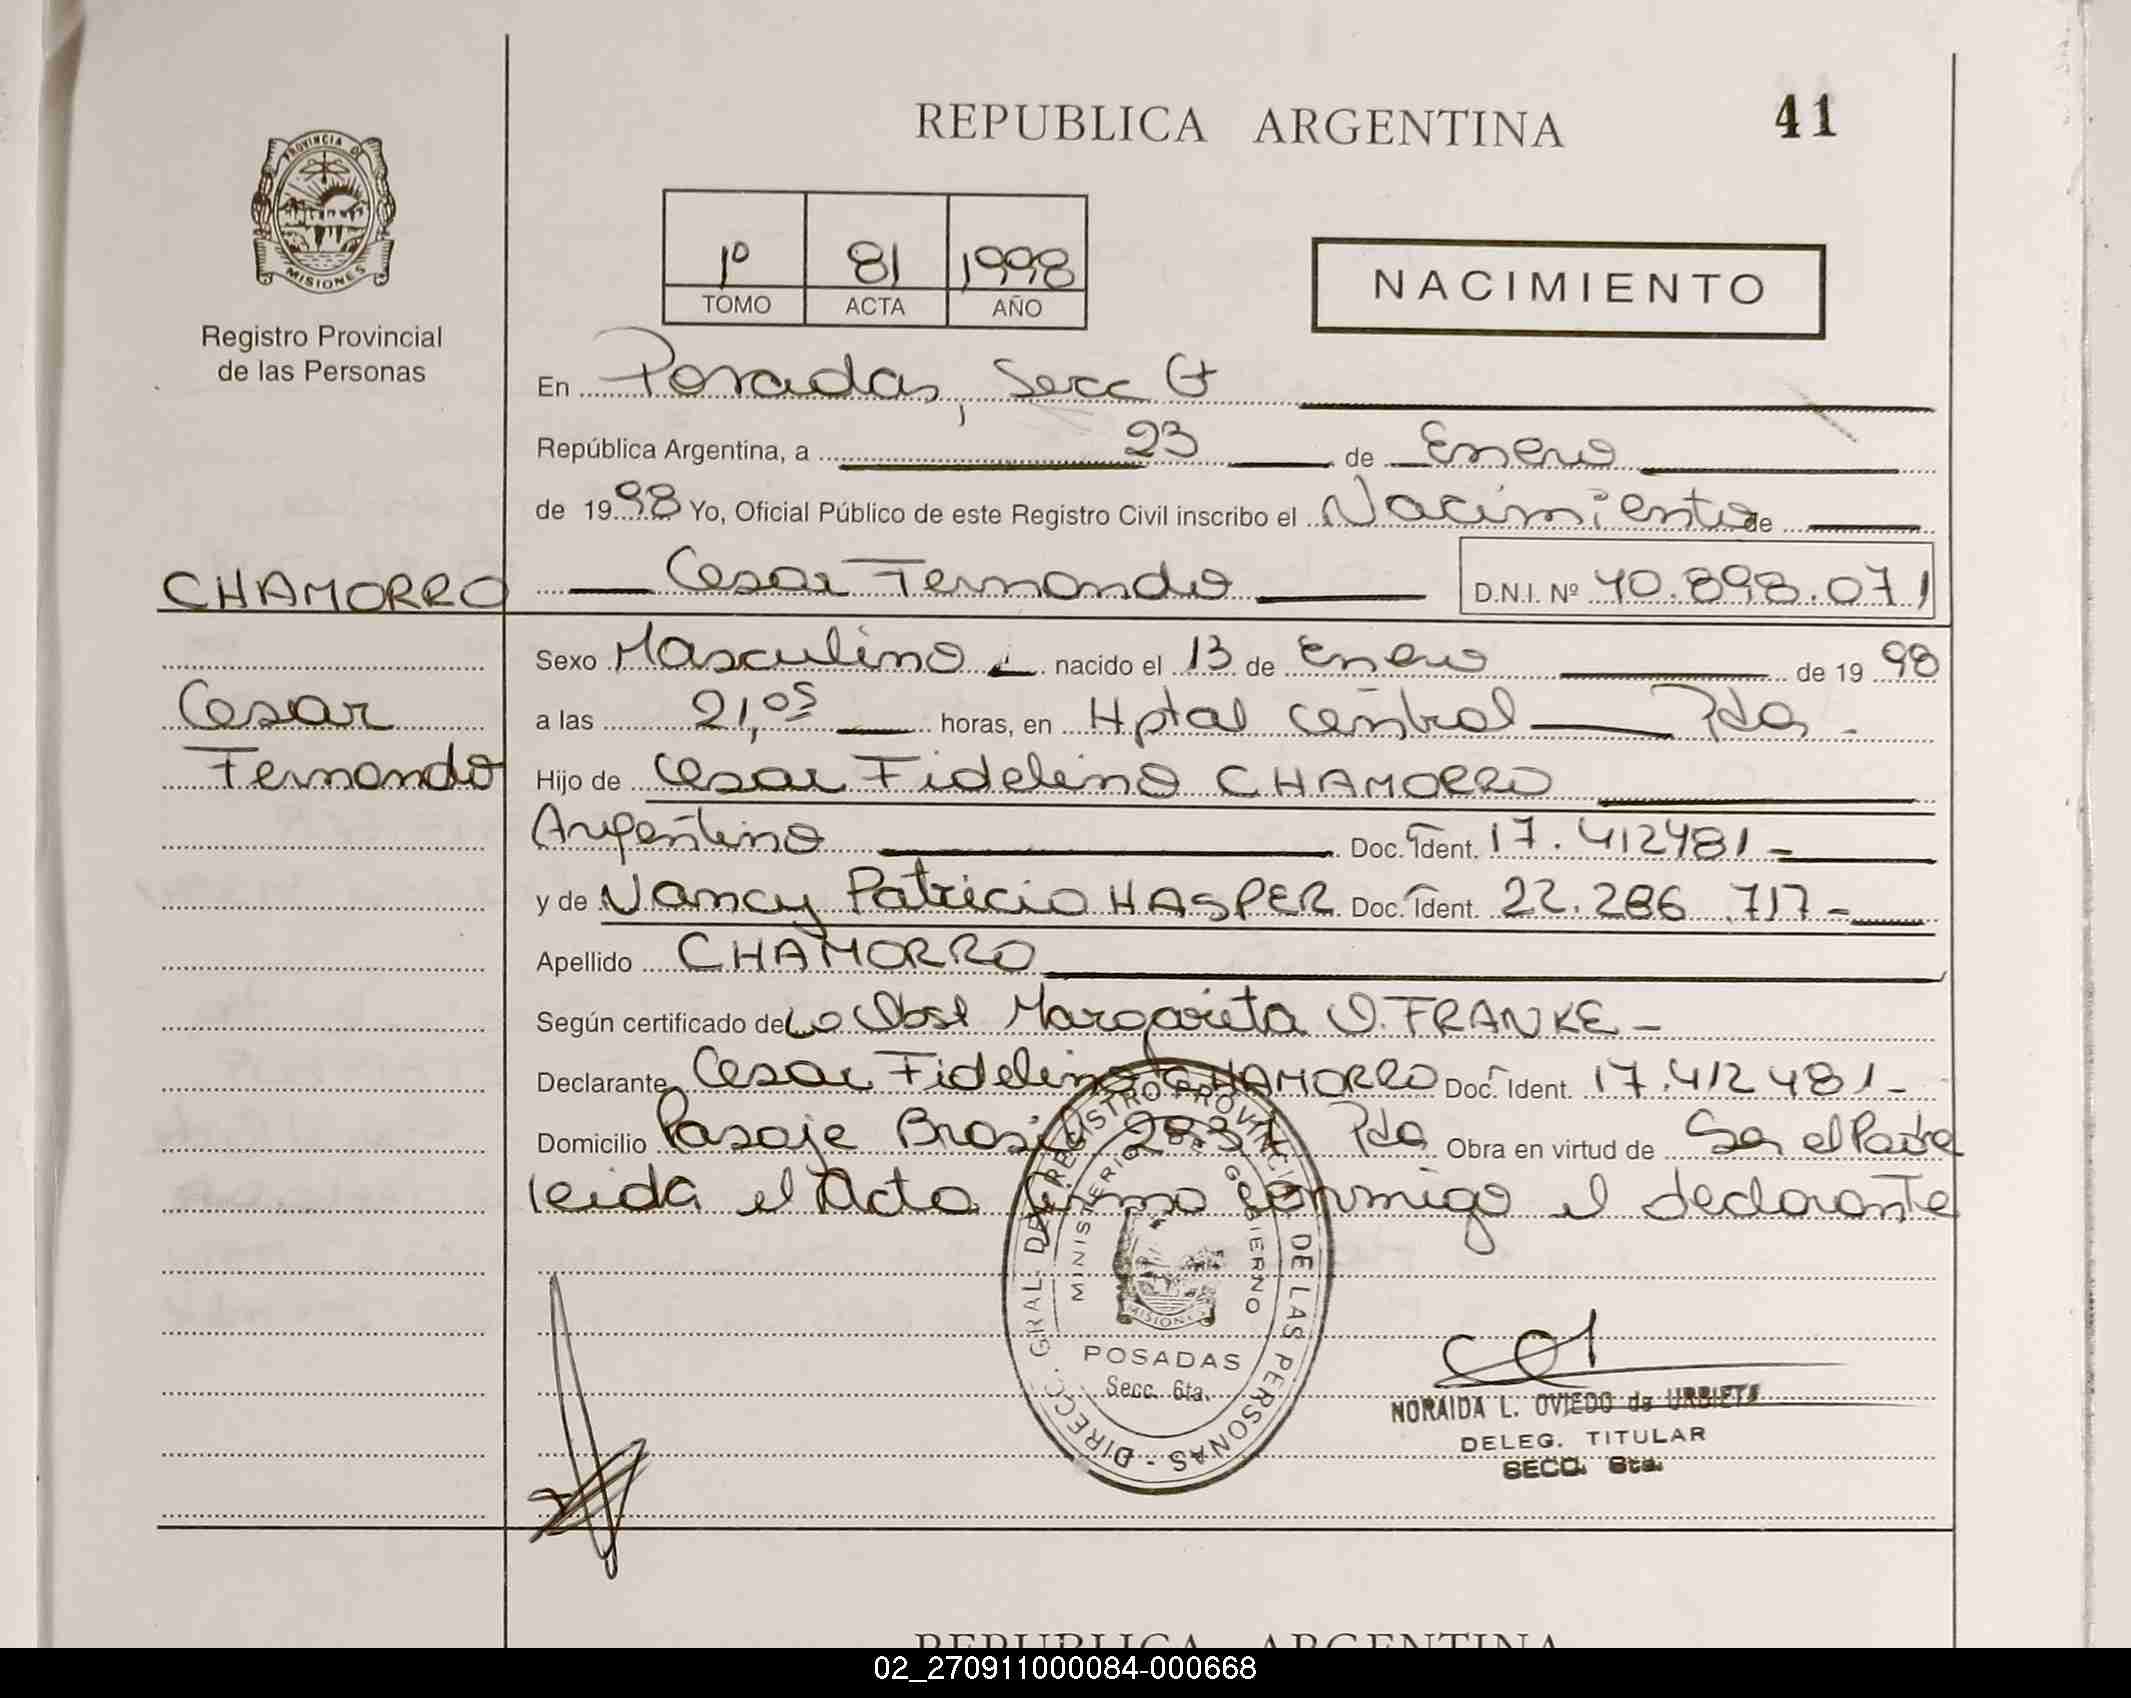 REPUBLICA ARGENTINA
41
PROVINCIA DE
MISIONES
Registro Provincial
de las Personas
1º 81 1998
TOMO ACTA AÑO
NACIMIENTO
En Posadas, Secc 6t
República Argentina, a 23 de Enero
de 1998 Yo, Oficial Público de este Registro Civil inscribo el Nacimiento de
CHAMORRO
Cesar Fernando D.N.I. Nº 40.898.071
Cesar
Fernando
Sexo Masculino nacido el 13 de Enero de 1998
a las 21,05 horas, en Hptal Central Pdas -
Hijo de Cesar Fidelino CHAMORRO
Argentino Doc. Ident. 17.412481-
y de Nancy Patricia HASPER Doc. Ident. 22.286.717-
Apellido CHAMORRO
Según certificado de La Obst Margarita O. FRANKE-
Declarante Cesar Fidelino CHAMORRO Doc. Ident. 17.412481-
Domicilio Pasaje Brasil Pdas Obra en virtud de Ser el Padre
leida el Acta firma conmigo el declarante
DIRECC. GRAL. DE REGISTRO PROVINCIAL DE LAS PERSONAS -
MINISTERIO DE GOBIERNO
MISIONES
POSADAS
Secc. 6ta.
NORAIDA L. OVIEDO de URBIETA
DELEG. TITULAR
SECC. 6ta.
REPUBLICA ARGENTINA
02_270911000084-000668